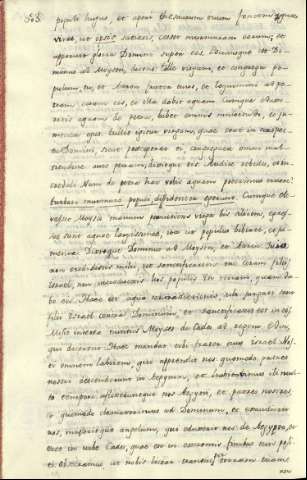 populi hujus, et aperi eis thesaurum tuum fontem aquæ
vivæ, ut satiati, cesset murmuratio eorum, et
apparuit gloria Domini super eos. Locutusque est Do-
minus ad Moysen, dicens: Tolle virgam, et congrega po-
pulum, tu, et Aaron frater tuus, et loquimini ad pe-
tram coram eis, et illa dabit aquam. Cumque eduxe-
ris aquam de petra, bibet omnis multitudo, et ju-
menta ejus. Tulit igitur Moyses virgam, quæ erat in conspec-
tu Domini, sicut præceperat ei, congregata omni mul-
titudine ante petram, dixitque eis: Audite rebelles, et in-
creduli: Num de petra hac vobis aquam poterimus
Cumque ele-
vasset Moyses manum, percutiens virga bis silicem, egres-
sæ sunt aquæ largissimæ, ita ut populus biberet, et ju-
menta. Dixitque Dominus ad Moysen, et Aaron: Quia
non credidistis mihi, ut sanctificaretis me coram filiis
Israel, non introducetis hos populos in terram, quam da-
bo eis. Hæc est aqua contradictionis, ubi jurgati sunt
filii Israel contra Dominum, et sanctificatus est in eis.
Misit interea nuntios Moyses de Cades ad regem Edom,
qui dicerent: Hæc mandat frater tuus Israel: Nos-
ti omnem laborem, qui apprehendit nos, quomodo patres
nostri descenderint in Ægyptum, et habitaverimus ibi mul-
to tempore, afflixerintque nos Ægyptii, et patres nostros:
et quomodo clamaverimus ad Dominum, et exaudierit
nos, miseritque angelum, qui eduxerit nos de Ægypto,
ecce in urbe Cades, quæ est in extremis finibus tuis posi-
ti, obsecramus, ut nobis transire liceat per terram tuam
non